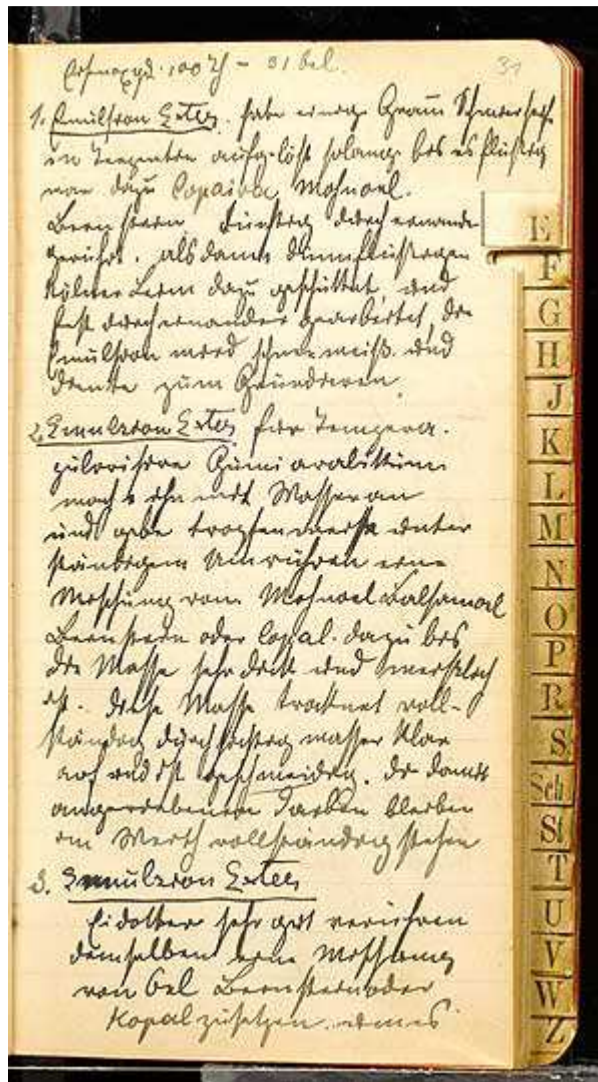 Eisenoxyd. 100 Th – 31 Oel.
31
1. Emulsion Exter. habe einige Gramm Schmierseife
in Terpentin aufgelöst solange bis es flüssig
nun dazu Copaiva, Mohnoel.
Bernstein, tüchtig durcheinander
gerührt. alsdann dünnflüssigen
Kölner Leim dazu geschüttet, und
fest durcheinander gearbeitet, die
Emulsion wird schneeweiß. und
diente zum Grundieren.
2. Emulsion Exter, für Tempera.
pulorisire Gumi arabikum
mache ihn mit Wasser an
und gebe tropfenweise unter
ständigem Umrühren eine
Mischung von Mohnoel Balsamoel
Bernstein oder Copal. dazu bis
die Masse sehr dick und
ist. diese Masse trocknet voll-
ständig durchsichtig wasser klar
auf und ist geschmeidig. die damit
angeriebenen Farben bleiben
im Werth vollständig stehen
3. Emulsion Exter,
Eidotter sehr gut verrühren
demselben eine Mischung
von Oel Bernstein oder
Kopal zusetzen.
E
F
G
H
J
K
L
M
N
O
P
R
S
Sch
St
T
U
V
W
Z